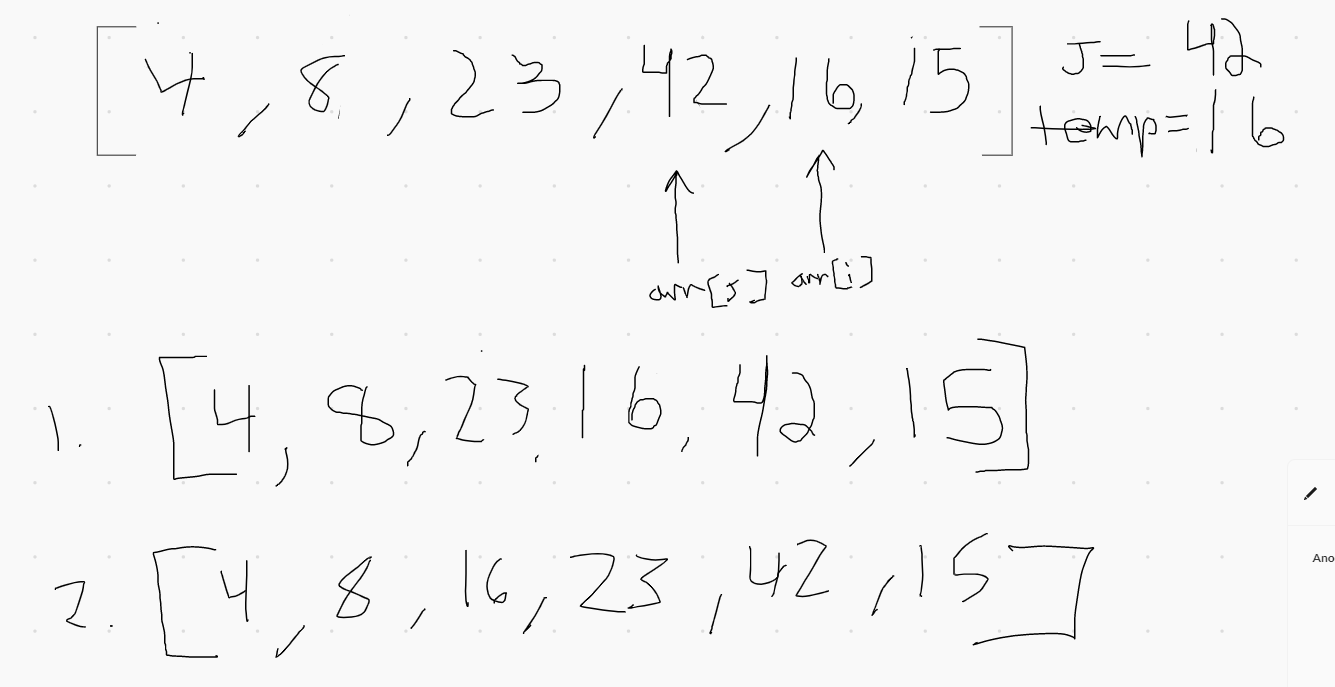 [4, 8, 23, 42, 16, 15] J= 42
temp=16
arr[J] arr[i]
1. [4, 8, 23, 16, 42, 15]
2. [4, 8, 16, 23, 42, 15]
Ano